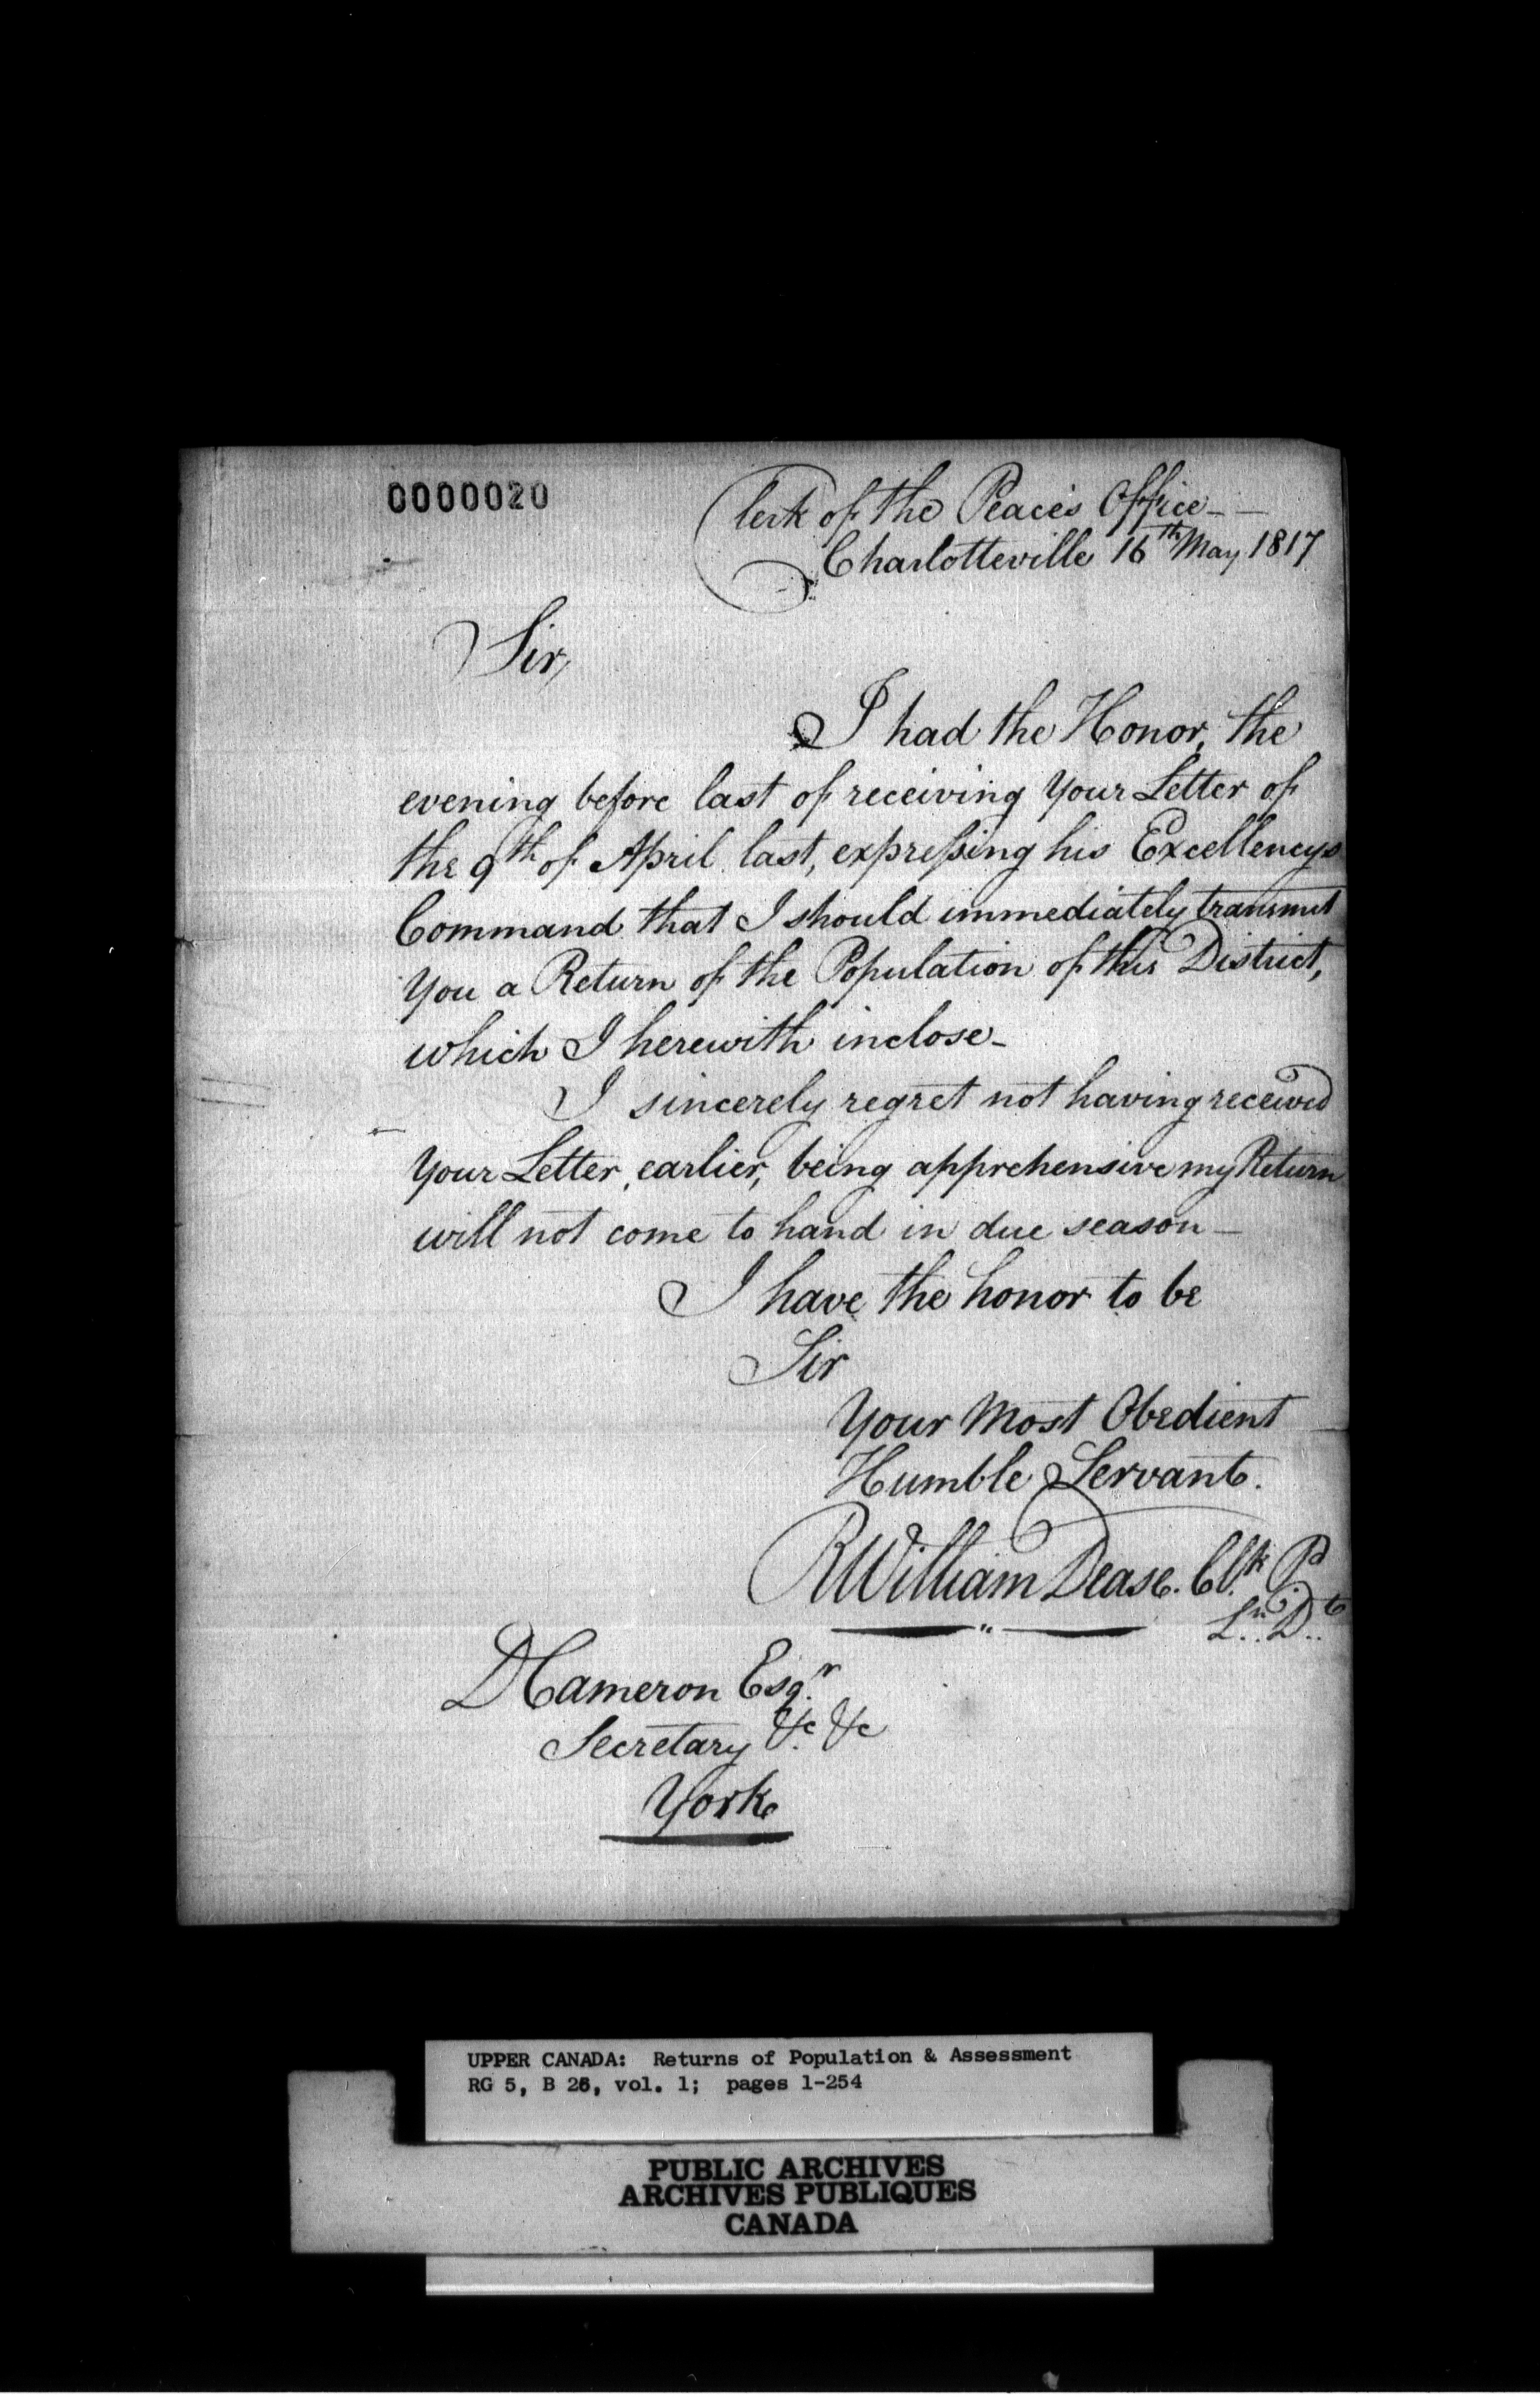 0000020
Clerk of the Peace's Office
Charlotteville 16th May 1817
Sir,
I had the Honor, the
evening before last of receiving Your Letter of
the 9th of April last, expreſsing his Excellencys
Command that I should immediately transmit
You a Return of the Population of this District,
which I herewith inclose_
I sincerely regret not having received
Your Letter, earlier, being apprehensive my Return
will not come to hand in due season_
I have the honor to be
Sir
Your Most Obedient
Humble Servant.
RWilliam Dease. Clk. Pe
Ln.. Dt..
DCameron Esqr.
Secretary &c. &c
York
UPPER CANADA: Returns of Population & Assessment
RG 5, B 26, vol. 1; pages 1-254
PUBLIC ARCHIVES
ARCHIVES PUBLIQUES
CANADA